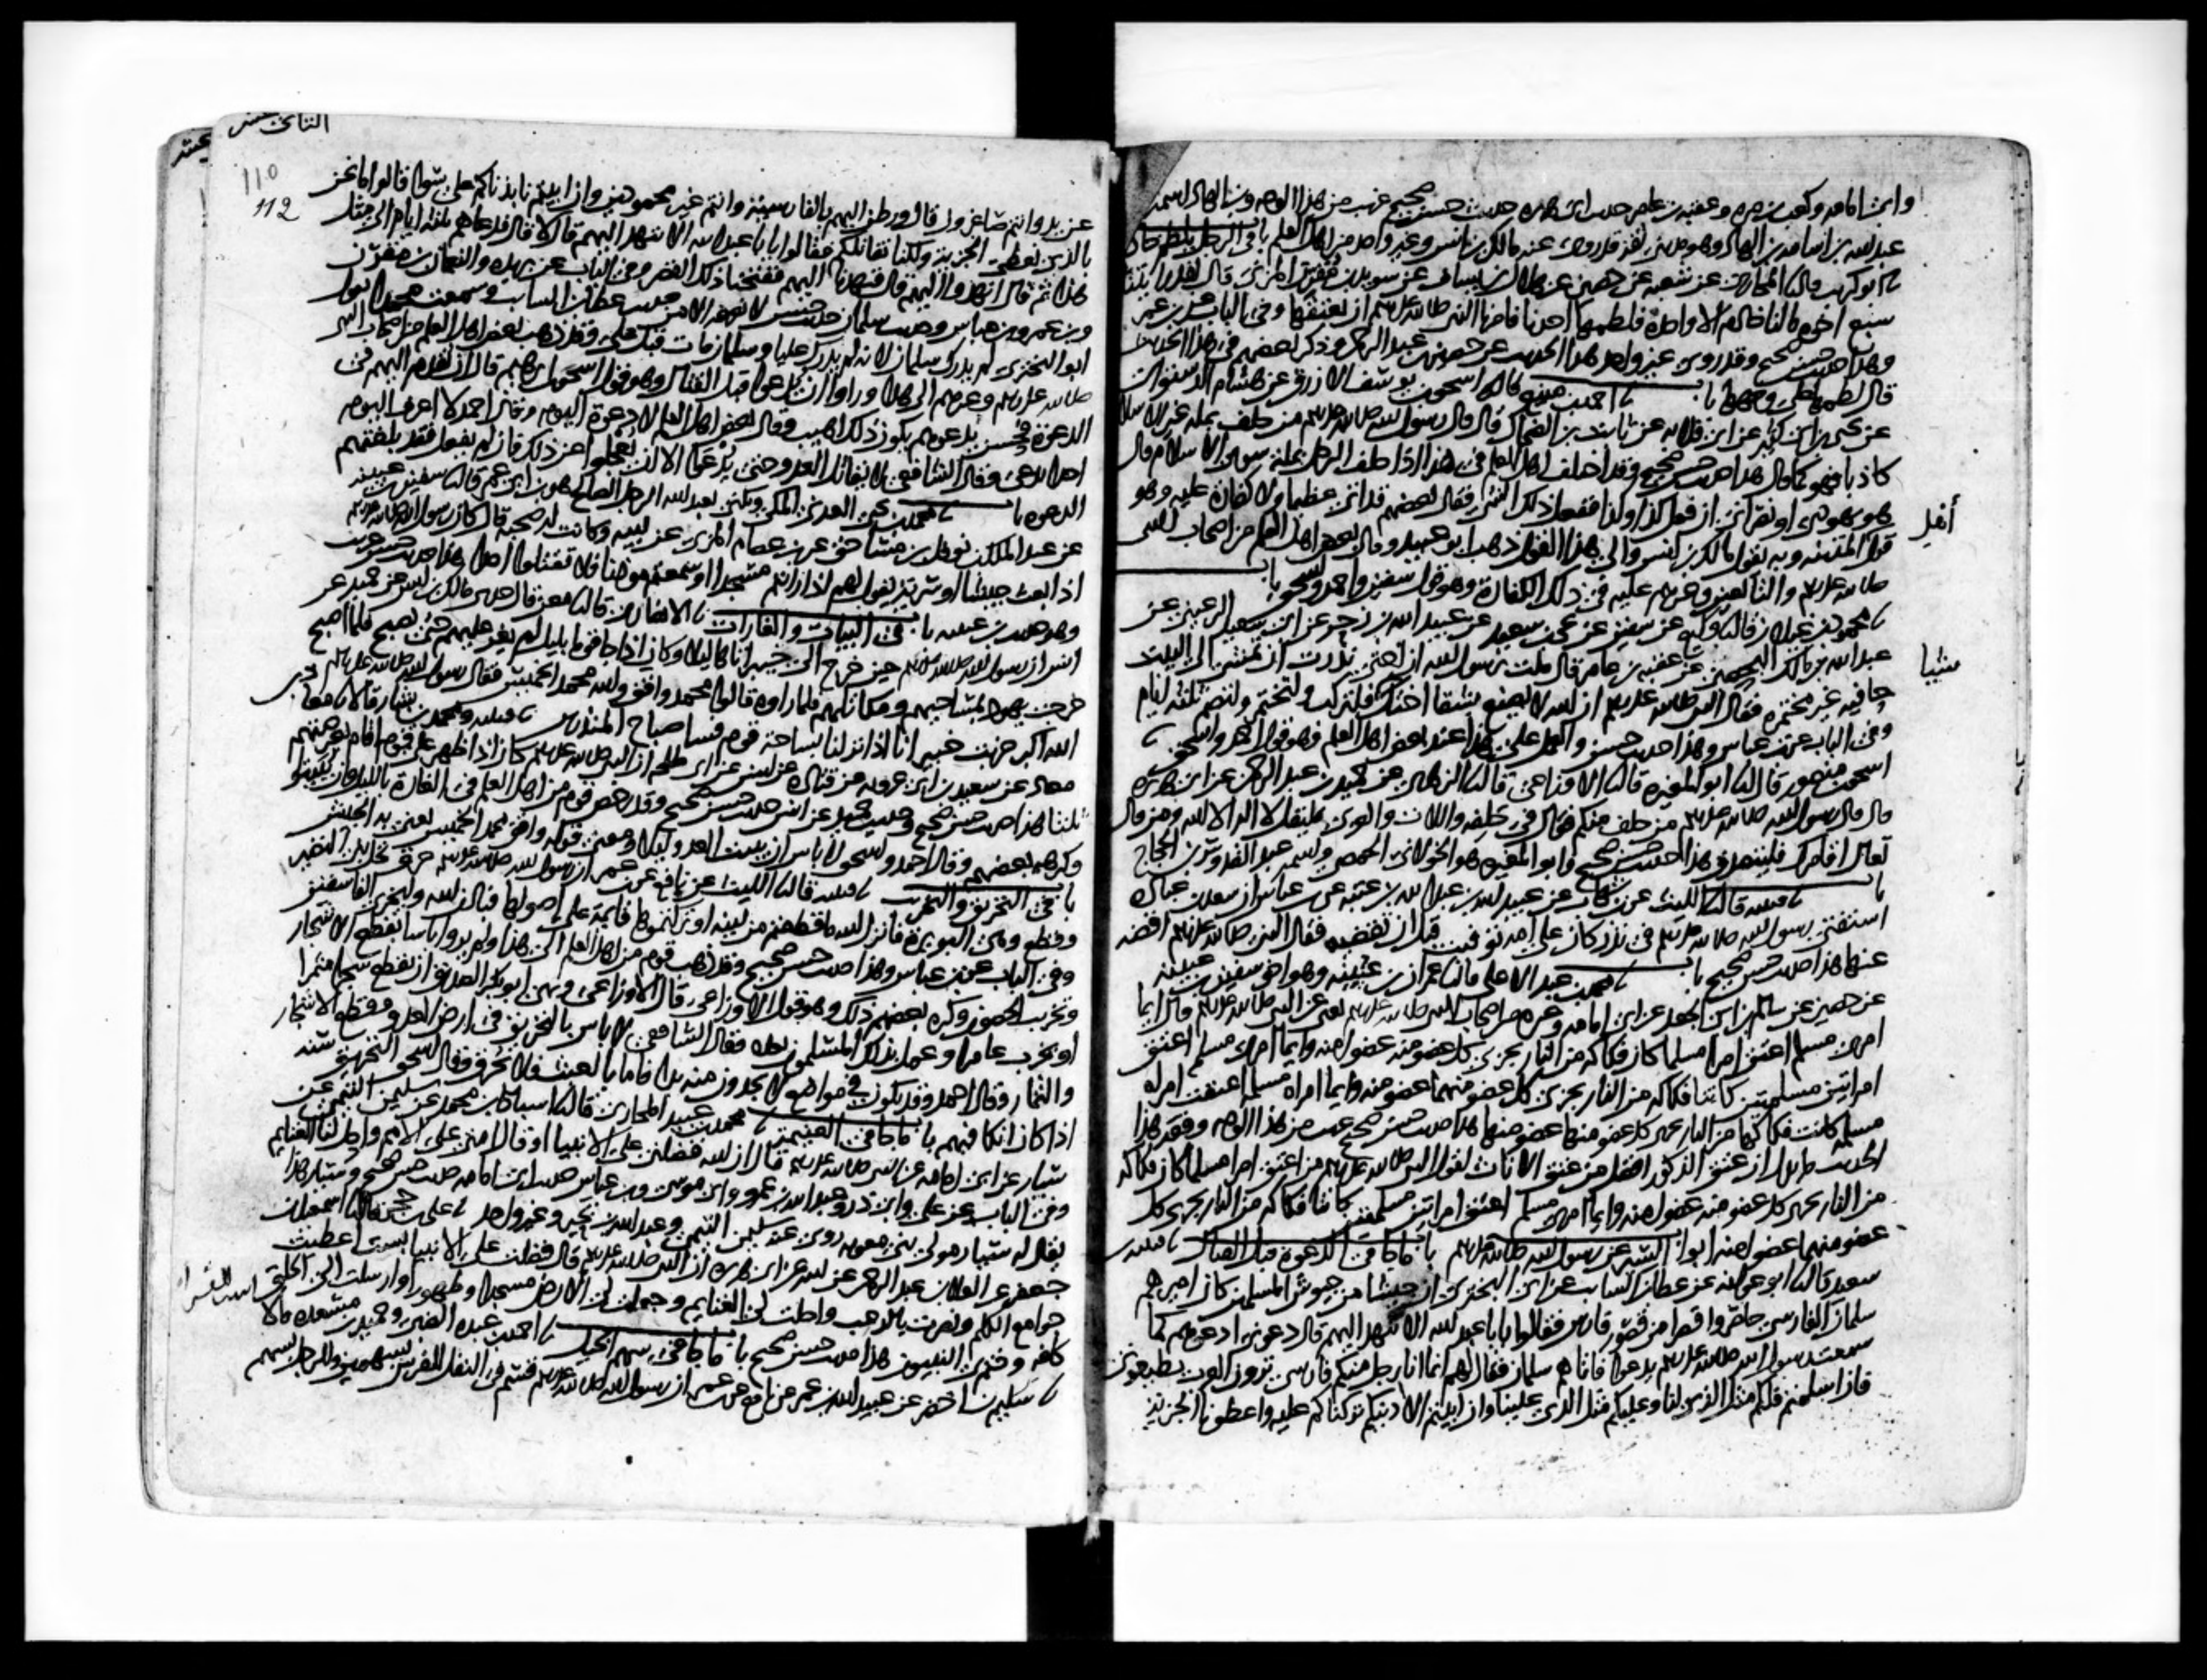 وابى امامه وكعب بن مره وعقبه بن عامر حديث ابى هريره حديث حسن صحيح غريب من هذا الوجه وابن الهاد اسمه
عبد الله بن اسامه بن الهاد وهو مدنى ثقه قد روى عنه مالك بن انس وغير واحد من اهل العلم باب فى الرجل يلطم خادمه
ابو كريب قال المحاربى عن شعبه عن حصين عن هلال بن يساف عن سويد بن مقرن المزنى قال لقد رايتنا
سبع اخوه ما لنا خادم الا واحدة فلطمها احدنا فامرنا النبى صلى الله عليه وسلم ان نعتقها وفى الباب عن ابن عمر
وهذا حديث حسن صحيح وقد روى غير واحد هذا الحديث عن حصين بن عبد الرحمن وذكر بعضهم فى هذا الحديث
قال لطمها على وجهها باب احمد بن منيع قال اسحق بن يوسف الازرق عن هشام الدستوائى
عن يحيى بن ابى كثير عن ابى قلابه عن ثابت بن الضحاك قال قال رسول الله صلى الله عليه وسلم من حلف بمله غير الاسلام
كاذبا فهو كما قال هذا حديث حسن صحيح وقد اختلف اهل العلم فى هذا اذا حلف الرجل بمله سوى الاسلام قال
هو يهودى او نصرانى ان فعل كذا وكذا ففعل ذلك الشى فقال بعضهم قد اتى عظيما ولا كفارة عليه وهو
قول اهل المدينه وبه يقول مالك بن انس والى هذا القول ذهب ابو عبيد وقال بعض اهل العلم من اصحاب النبى
صلى الله عليه وسلم والتابعين وغيرهم عليه فى ذلك الكفارة وهو قول سفين واحمد واسحق باب
محمود بن غيلان قال وكيع عن سفين عن يحيى بن سعيد عن عبيد الله بن زحر عن ابى سعيد الرعينى عن
عبد الله بن مالك اليحصبى عن عقبه بن عامر قال قلت يرسول الله ان اختى نذرت ان تمشى الى البيت
حافيه غير مختمره فقال النبى صلى الله عليه وسلم ان الله لا يصنع بشقا اختك فلتركب ولتختمر ولتصم ثلثه ايام
وفى الباب عن ابن عباس وهذا حديث حسن والعمل على هذا عند بعض اهل العلم وهو قول احمد واسحق
اسحق بن منصور قال ابو المغيره قال الاوزاعى قال الزهرى عن حميد بن عبد الرحمن عن ابى هريره
قال قال رسول الله صلى الله عليه وسلم من حلف منكم فقال فى حلفه واللات والعزى فليقل لا اله الا الله ومن قال
تعال اقامرك فليتصدق هذا حديث حسن صحيح وابو المغيره هو الخولانى الحمصى واسمه عبد القدوس بن الحجاج
باب قتيبه قال الليث عن ابن شهاب عن عبيد الله بن عبد الله بن عتبه عن ابن عباس ان سعد بن عباده
استفتى رسول الله صلى الله عليه وسلم فى نذر كان على امه توفيت قبل ان تقضيه فقال النبى صلى الله عليه وسلم اقضه
عنها هذا حديث حسن صحيح باب محمد بن عبد الاعلى قال عمران بن عيينه وهو اخو سفين بن عيينه
عن حصين عن سالم بن ابى الجعد عن ابى امامه وغيره من اصحاب النبى صلى الله عليه وسلم عن النبى صلى الله عليه وسلم قال ايما
امرى مسلم اعتق امرا مسلما كان فكاكه من النار يجزى كل عضو منه عضوا منه وايما امرى مسلم اعتق
امراتين مسلمتين كانتا فكاكه من النار يجزى كل عضو منهما عضوا منه وايما امراه مسلمه اعتقت امراه
مسلمه كانت فكاكها من النار يجزى كل عضو منها عضوا منها هذا حديث حسن صحيح غريب من هذا الوجه وفقه هذا
الحديث ان عتق الذكور افضل من عتق الاناث لقول النبى صلى الله عليه وسلم من اعتق امرا مسلما كان فكاكه
من النار يجزى كل عضو منه عضوا منه وايما امرى مسلم اعتق امراتين مسلمتين كانتا فكاكه من النار يجزى كل
عضو منهما عضوا منه ابواب السير عن رسول الله صلى الله عليه وسلم باب ما جا فى الدعوة قبل القتال قتيبه بن
سعيد قال ابو عوانه عن عطا بن السايب عن ابى البخترى ان جيشا من جيوش المسلمين كان اميرهم
سلمان الفارسى حاصروا قصرا من قصور فارس فقالوا يابا عبد الله الا ننهد اليهم قال دعونى ادعوهم كما
سمعت رسول الله صلى الله عليه وسلم يدعوا فاتاهم سلمان فقال لهم انما انا رجل منكم فارسى ترون العرب يطيعونى
فان اسلمتم فلكم مثل الذى لنا وعليكم مثل الذى علينا وان ابيتم الا دينكم تركناكم عليه واعطونا الجزيه
أفعل
شيبا
الثانى عشر
110
112
عن يد وانتم صاغرون قال ورطن اليهم بالفارسية وانتم غير محمودين وان ابيتم نابذناكم على سوا قالوا ما نحن
بالذى نعطى الجزية ولكنا نقاتلكم فقالوا يابا عبد الله الا ننهد اليهم قال لا قال فدعاهم ثلثه ايام الى مثل
هذا ثم قال انهدوا اليهم قال فنهدنا اليهم ففتحنا ذلك القصر وفى الباب عن بريده والنعمان بن مقرن
وبن عمر وبن عباس وحديث سلمان حديث حسن لا نعرفه الا من حديث عطا بن السايب وسمعت محمدا يقول
ابو البخترى لم يدرك سلمان لانه لم يدرك عليا وسلمان مات قبل على وقد ذهب بعض اهل العلم من اصحاب النبى
صلى الله عليه وسلم وغيرهم الى هذا وراوا ان يدعوا قبل القتال وهو قول اسحق بن ابرهيم قال ان تقدم اليهم فى
الدعوة فحسن يكون ذلك اهيب وقال بعض اهل العلم لا دعوة اليوم وقال احمد لا اعرف اليوم
احدا يدعى وقال الشافعى لا يقاتل العدو حتى يدعوا الا ان يعجلوا عن ذلك فان لم يفعل فقد بلغتهم
الدعوه باب محمد بن يحيى العدنى المكى ويكنى بعبد الله الرجل الصالح هو ابن ابى عمر قال سفين بن عيينه
عن عبد الملك بن نوفل بن مساحق عن ابن عصام المزنى عن ابيه وكانت له صحبه قال كان رسول الله صلى الله عليه وسلم
اذا بعث جيشا او سرية يقول لهم اذا رايتم مسجدا او سمعتم موذنا فلا تقتلوا احدا هذا حديث حسن غريب
وهو حديث بن عيينه باب فى البيات والغارات الانصارى قال معن قال حدثنى مالك بن انس عن حميد عن
انس ان رسول الله صلى الله عليه وسلم حين خرج الى خيبر اتاها ليلا وكان اذا جا قوما بليل لم يغر عليهم حتى يصبح فلما اصبح
خرجت يهود بمساحيهم ومكاتلهم فلما راوه قالوا محمد وافق والله محمد الخميس فقال رسول الله صلى الله عليه وسلم
الله اكبر خربت خيبر انا اذا نزلنا بساحة قوم فسا صباح المنذرين قتيبه ومحمد بن بشار قالا معاذ بن
معاذ عن سعيد بن ابى عروبه عن قتاده عن انس عن ابى طلحه ان النبى صلى الله عليه وسلم كان اذا ظهر على قوم اقام بعرصتهم
ثلثا هذا حديث حسن صحيح وحديث حميد عن انس حديث حسن صحيح وقد رخص قوم من اهل العلم فى الغارة بالليل وان يبيتوا
وكرهه بعضهم وقال احمد واسحق لا باس ان يبيت العدو ليلا ومعنى قوله وافق محمد الخميس يعنى به الجيش
باب فى التحريق والتخريب قتيبه قال الليث عن نافع عن ابن عمر ان رسول الله صلى الله عليه وسلم حرق نخل بنى النضير
وقطع وهى البويرة فانزل الله ما قطعتم من لينه او تركتموها قايمة على اصولها فباذن الله وليخزى الفاسقين
وفى الباب عن ابن عباس وهذا حديث حسن صحيح وقد ذهب قوم من اهل العلم الى هذا ولم يروا باسا بقطع الاشجار
وتخريب الحصون وكره بعضهم ذلك وهو قول الاوزاعى قال الاوزاعى ونهى ابو بكر الصديق ان يقطع شجرا مثمرا
او يخرب عامرا وعمل بذلك المسلمون بعده وقال الشافعى لا باس بالتحريق فى ارض العدو وقطع الاشجار
والثمار وقال احمد وقد يكون فى مواضع لا يجدون منه بدا فاما بالعبث فلا يحرق وقال اسحق التحريق سنه
اذا كان انكا فيهم باب ما جا فى الغنيمة محمد بن عبيد المحاربى قال اسباط بن محمد عن سليمن التيمى عن
سيار عن ابى امامه عن النبى صلى الله عليه وسلم قال ان الله فضلنى على الانبيا او قال امتى على الامم واحل لنا الغنايم
وفى الباب عن على وابى ذر وعبد الله بن عمرو وابى موسى وبن عباس حديث ابى امامه حديث حسن صحيح وسيار هذا
يقال له سيار مولى بنى معويه روى عنه سليمن التيمى وعبد الله بن بحير وغير واحد على بن حجر قال اسمعيل بن
جعفر عن العلا بن عبد الرحمن عن ابيه عن ابى هريره ان النبى صلى الله عليه وسلم قال فضلت على الانبيا بست اعطيت
جوامع الكلم ونصرت بالرعب واحلت لى الغنايم وجعلت لى الارض مسجدا وطهورا وارسلت الى الخلق
كافه وختم بى النبيون هذا حديث حسن صحيح باب ما جا فى سهم الخيل احمد بن عبده الضبى وحميد بن مسعده قالا
سليم بن اخضر عن عبيد الله بن عمر عن نافع عن ابن عمر ان رسول الله صلى الله عليه وسلم قسم فى النفل للفرس بسهمين وللرجل بسهم